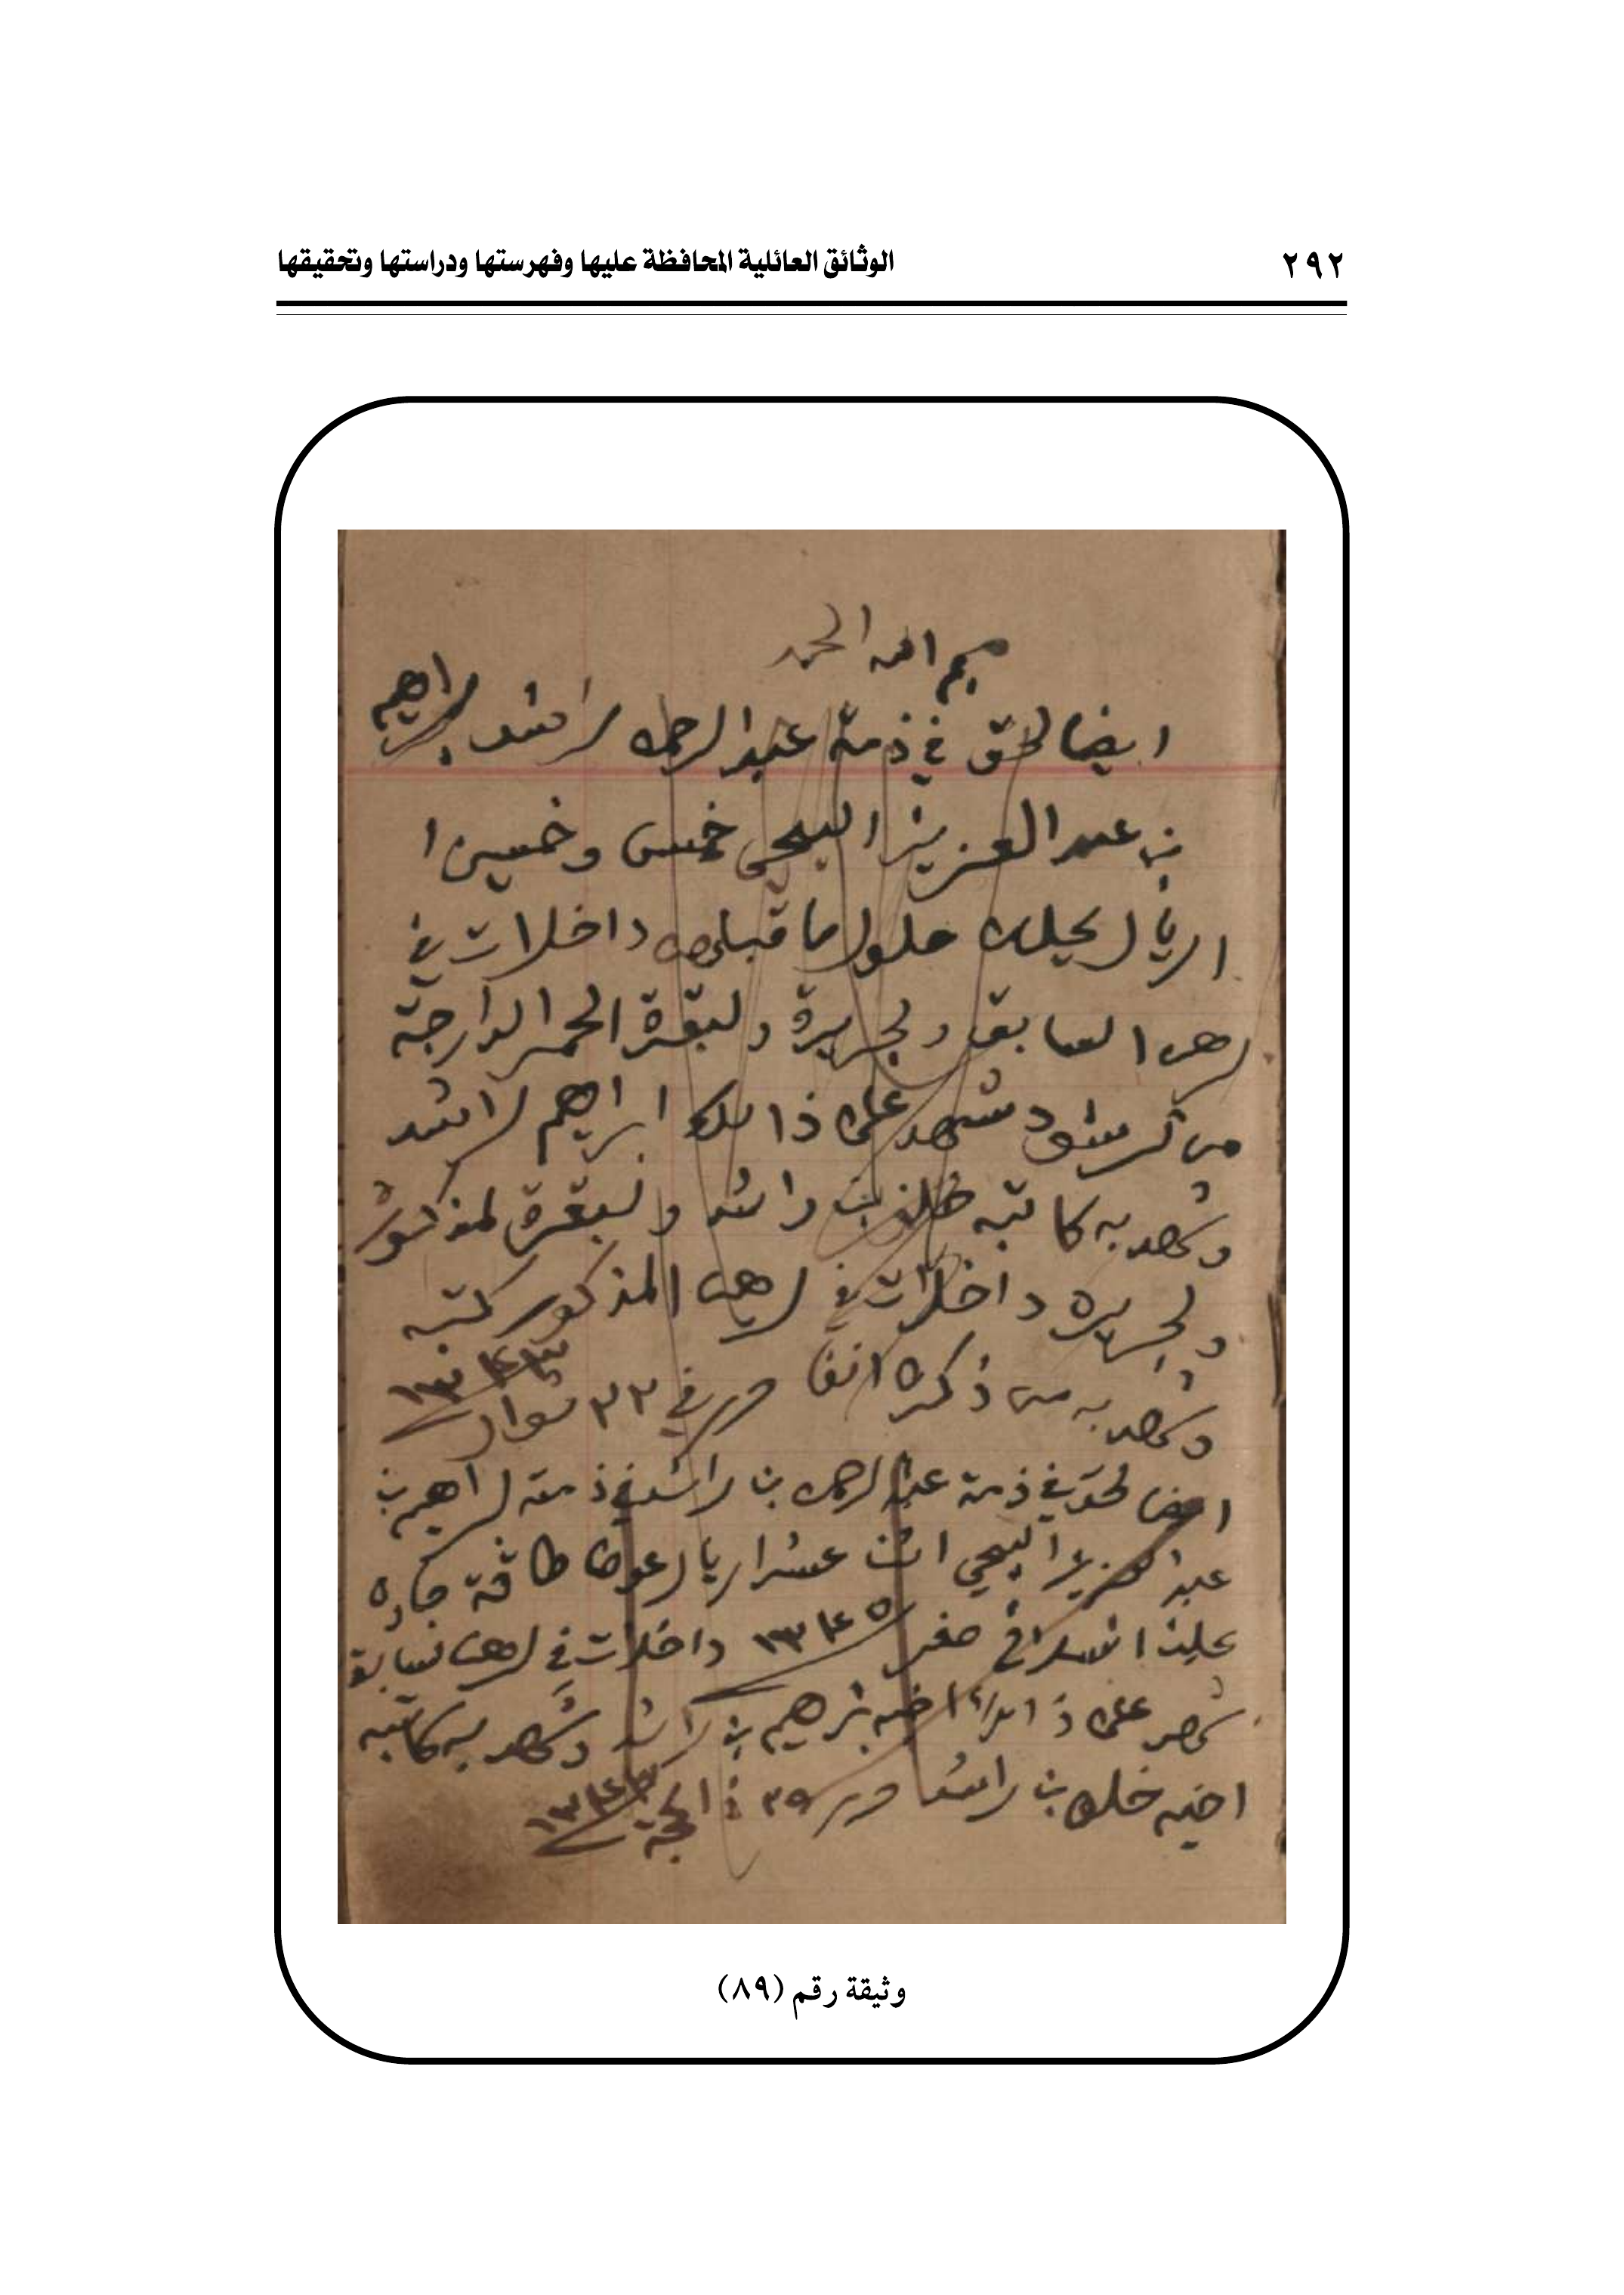 ٢٩٢
الوثائق العائلية المحافظة عليها وفهرستها ودراستها وتحقيقها
بسم الله الحمد
ايضا لحق في ذمة عبدالرحمن لراشد براهيم
بن عبدالعزيز اليحيى خمس وخمسين ا
اريال يحلن حلول ما قبلهن داخلات في
لرهن السابق ولجريرة ولبقرة الحمرا الدارجة
من شهد على ذالك ابراهيم لراشد
وشهد به كاتبه خلف بن راشد ولبقرة لمذكور
ولجريره داخلات في لرهن المذكور كتبه
وشهد به من ذكره انفا حرر في ٢٢ شوال ١٣٤٣
ايضا لحق في ذمة عبدالرحمن بن راشد في ذمته لبراهيم بن
عبدلعزيز اليحيى اثن عشر اريال عوض طاقة
يحلن انسلاخ صفر ١٣٤٥ داخلات في لرهن لسابق
شهد على ذالك اخيه براهيم بن راشد وشهد به كاتبه
اخيه خلف بن راشد حرر ٢٥ ذ الحجة
وثيقة رقم (٨٩)